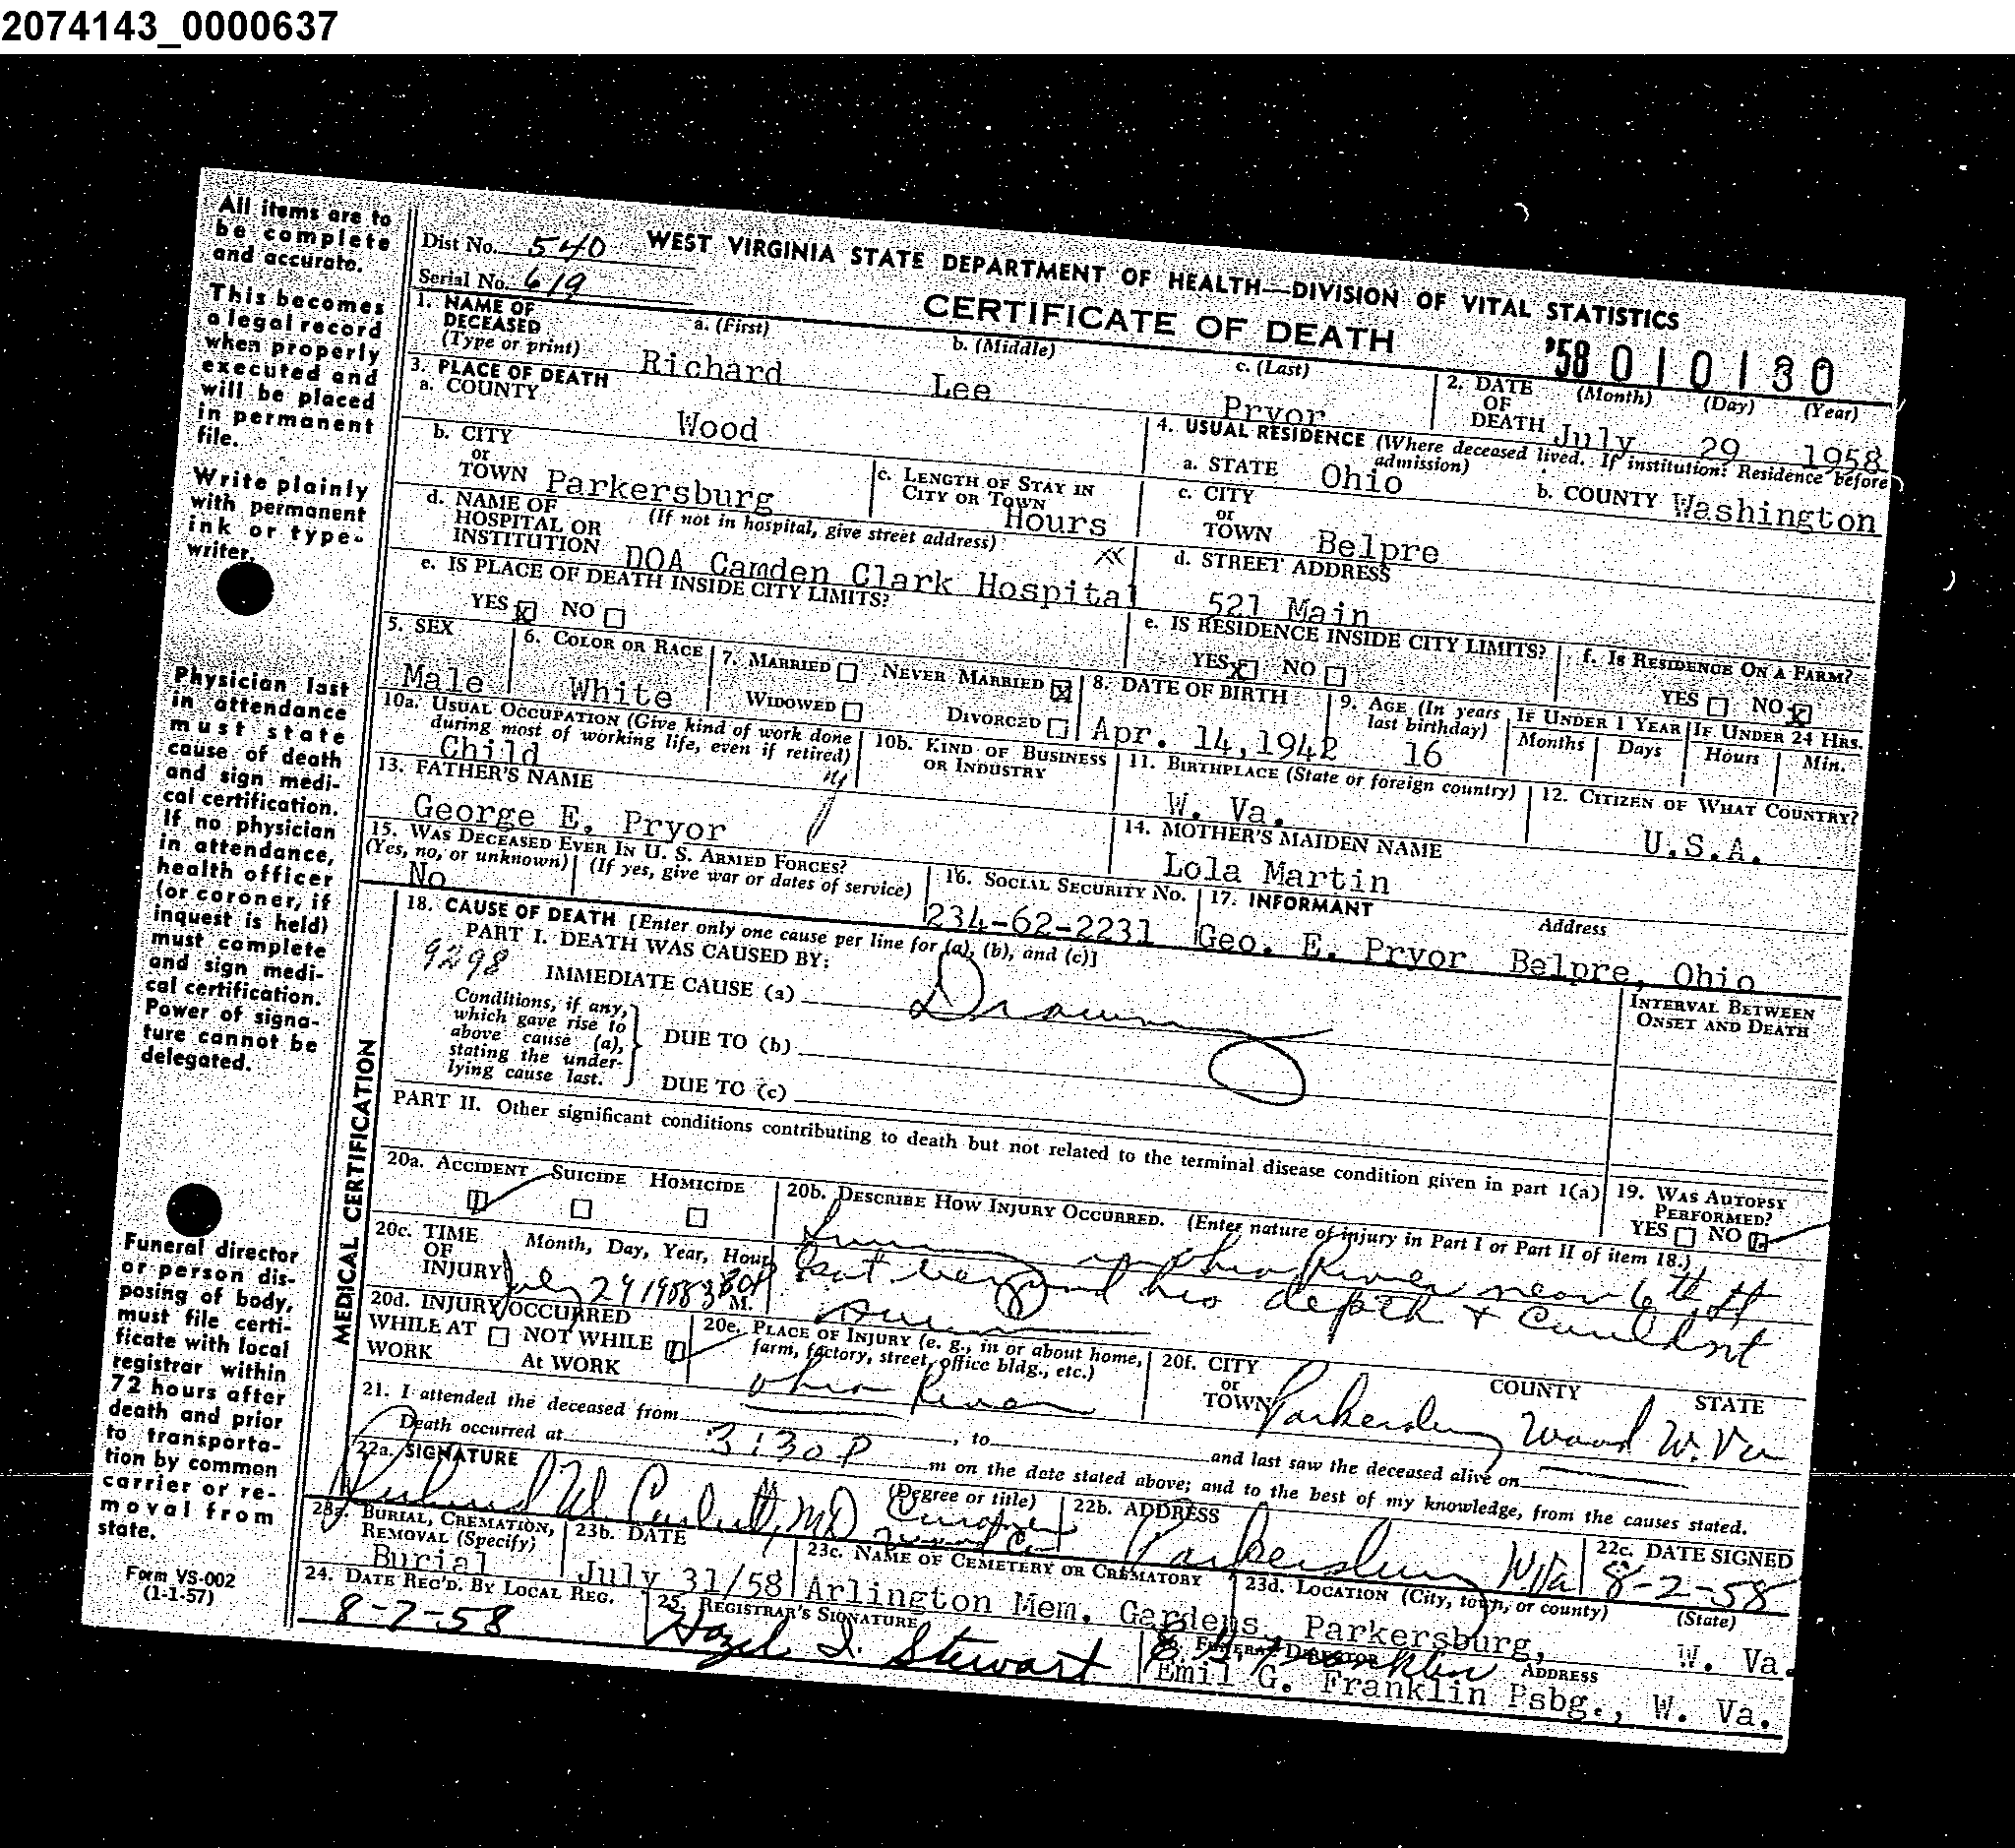 2074143_0000637
All items are to
be complete
and accurate.
This becomes
a legal record
when properly
executed and
will be placed
in permanent
file.
Write plainly
with permanent
ink or type-
writer.
Physician last
in attendance
must state
cause of death
and sign medi-
cal certification.
If no physician
in attendance,
health officer
(or coroner, if
inquest is held)
must complete
and sign medi-
cal certification.
Power of signa-
ture cannot be
delegated.
Funeral director
or person dis-
posing of body,
must file certi-
ficate with local
registrar within
72 hours after
death and prior
to transporta-
tion by common
carrier or re-
moval from
state.
Form VS-002
(1-1-57)
Dist No. 540
Serial No. 619
WEST VIRGINIA STATE DEPARTMENT OF HEALTH—DIVISION OF VITAL STATISTICS
CERTIFICATE OF DEATH
'58 010130
1. NAME OF DECEASED (Type or print) a. (First) Richard b. (Middle) Lee c. (Last) Pryor
2. DATE OF DEATH (Month) (Day) (Year) July 29 1958
3. PLACE OF DEATH
a. COUNTY Wood
4. USUAL RESIDENCE (Where deceased lived. If institution: Residence before admission)
a. STATE Ohio b. COUNTY Washington
b. CITY or TOWN Parkersburg
c. LENGTH OF STAY IN CITY OR TOWN Hours
c. CITY or TOWN Belpre
d. NAME OF HOSPITAL OR INSTITUTION (If not in hospital, give street address) DOA Camden Clark Hospital
d. STREET ADDRESS 521 Main
e. IS PLACE OF DEATH INSIDE CITY LIMITS? YES x NO
e. IS RESIDENCE INSIDE CITY LIMITS? YES x NO
f. IS RESIDENCE ON A FARM? YES NO x
5. SEX Male
6. COLOR OR RACE White
7. MARRIED NEVER MARRIED x WIDOWED DIVORCED
8. DATE OF BIRTH Apr. 14,1942
9. AGE (In years last birthday) 16
IF UNDER 1 YEAR Months Days
IF UNDER 24 HRS. Hours Min.
10a. USUAL OCCUPATION (Give kind of work done during most of working life, even if retired) Child
10b. KIND OF BUSINESS OR INDUSTRY
11. BIRTHPLACE (State or foreign country) W. Va.
12. CITIZEN OF WHAT COUNTRY? U.S.A.
13. FATHER'S NAME George E. Pryor
14. MOTHER'S MAIDEN NAME Lola Martin
15. WAS DECEASED EVER IN U. S. ARMED FORCES? (Yes, no, or unknown) (If yes, give war or dates of service) No
16. SOCIAL SECURITY NO. 234-62-2231
17. INFORMANT Address Geo. E. Pryor Belpre, Ohio
MEDICAL CERTIFICATION
18. CAUSE OF DEATH [Enter only one cause per line for (a), (b), and (c)]
PART I. DEATH WAS CAUSED BY:
9298 IMMEDIATE CAUSE (a) Drowning
INTERVAL BETWEEN ONSET AND DEATH
Conditions, if any, which gave rise to above cause (a), stating the under-lying cause last.
DUE TO (b)
DUE TO (c)
PART II. Other significant conditions contributing to death but not related to the terminal disease condition given in part 1(a)
19. WAS AUTOPSY PERFORMED? YES NO
20a. ACCIDENT SUICIDE HOMICIDE
20b. DESCRIBE HOW INJURY OCCURRED. (Enter nature of injury in Part I or Part II of item 18.)
Swimming in Ohio River near 6th St
Got beyond his depth & couldnt
swim
20c. TIME OF INJURY Month, Day, Year, Hour July 29 1958 330P M.
20d. INJURY OCCURRED WHILE AT WORK NOT WHILE AT WORK
20e. PLACE OF INJURY (e. g., in or about home, farm, factory, street, office bldg., etc.) Ohio River
20f. CITY or TOWN COUNTY STATE Parkersburg Wood W. Va
21. I attended the deceased from , to and last saw the deceased alive on
Death occurred at 3:30 P m on the date stated above; and to the best of my knowledge, from the causes stated.
22a. SIGNATURE (Degree or title) Richard W. Corbitt, MD Coroner Wood Co
22b. ADDRESS Parkersburg W. Va
22c. DATE SIGNED 8-2-58
23a. BURIAL, CREMATION, REMOVAL (Specify) Burial
23b. DATE July 31/58
23c. NAME OF CEMETERY OR CREMATORY Arlington Mem. Gardens,
23d. LOCATION (City, town, or county) (State) Parkersburg, W. Va.
24. DATE REC'D. BY LOCAL REG. 8-2-58
25. REGISTRAR'S SIGNATURE Hazel I. Stewart
26. FUNERAL DIRECTOR ADDRESS
Franklin
Emil G. Franklin Psbg., W. Va.